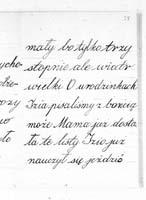 mały bo tylko trzy
stopnie ale wiatr
wielki O urodzinkach
Izia pisaliśmy z
może Mama już dosta
ła te listy Izio już
nauczył się jeździć